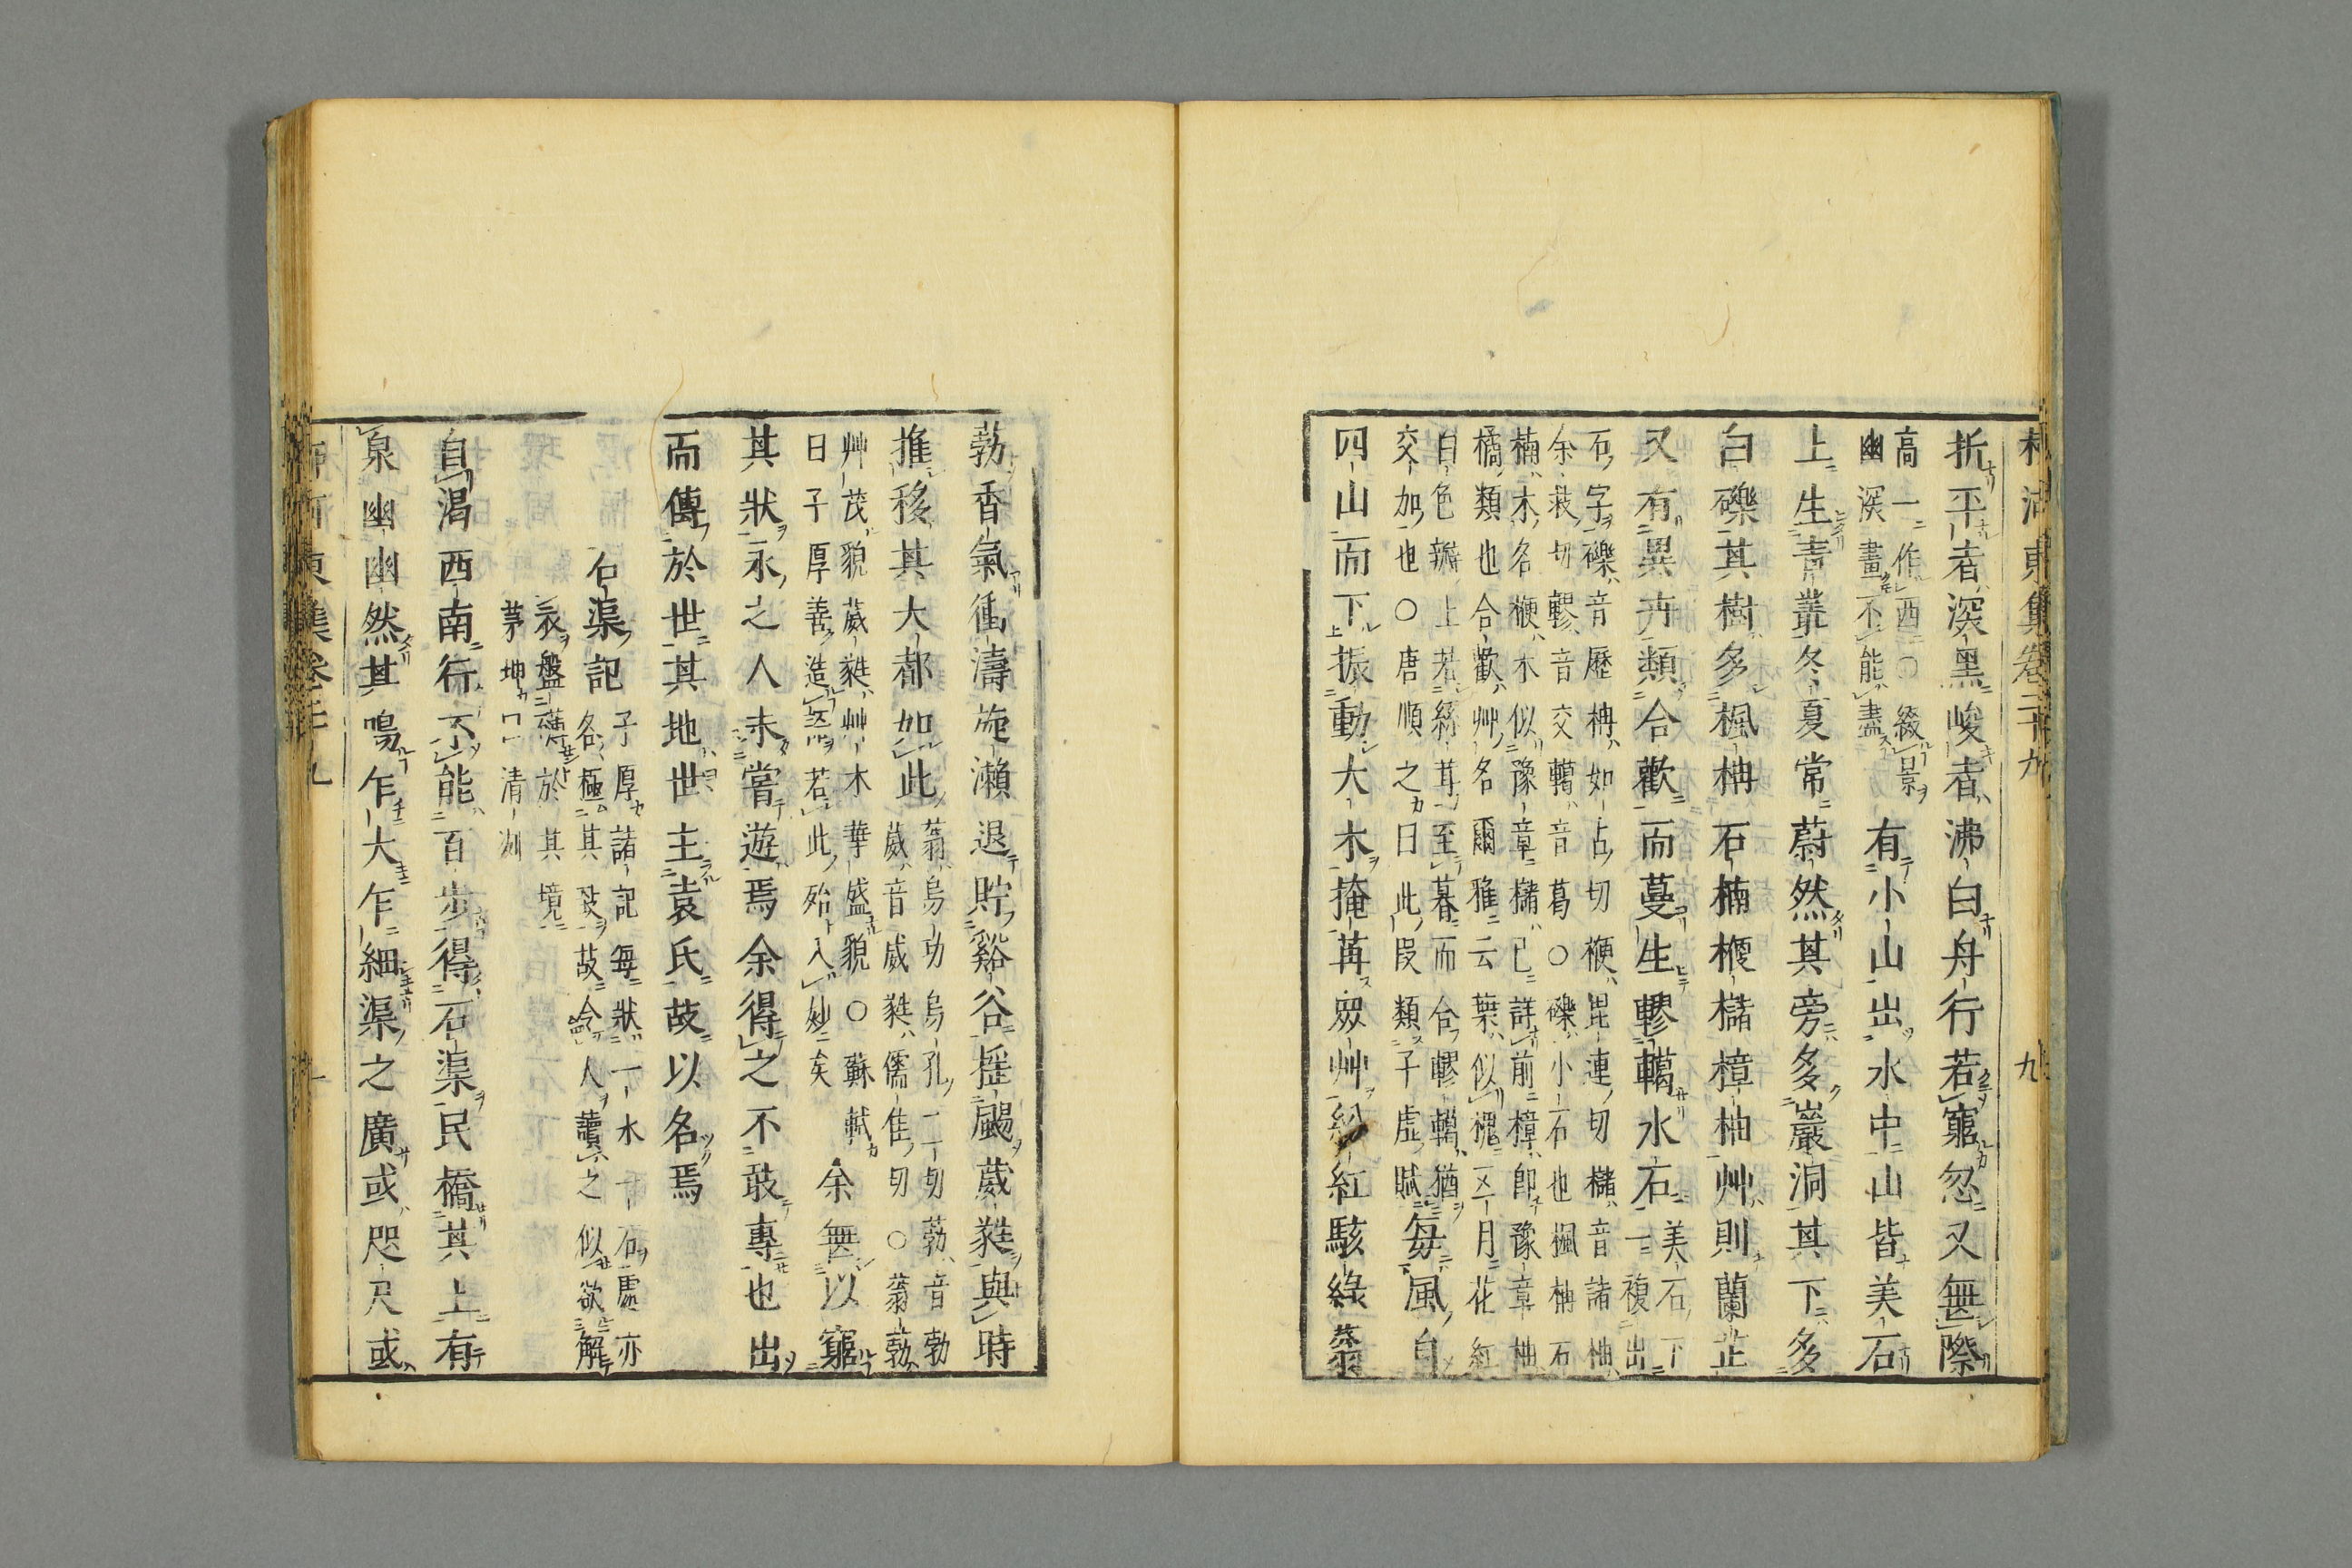 柳河東集卷二十九　九
折平者深黑峻者沸白舟行若窮忽又無際
高一作西○綴景
幽深畫不能盡
有小山出水中山皆美石
上生青叢冬夏常蔚然其旁多巖洞其下多
白礫其樹多楓柟石楠楩櫧樟柚艸則蘭芷
又有異卉類合歡而蔓生轇轕水石
美石下
一複出
石字礫音歷柟如占切楩毘連切櫧音諸柚
余救切轇音交轕音葛○礫小石也楓柟石
楠木名楩木似豫章櫧已詳前樟即豫章柚
橘類也合歡艸名爾雅云葉似槐五月花紅
白色瓣上若絲茸至暮而合轇轕猶
交加也○唐順之曰此段類子虛賦
每風自
四山而下振動大木掩苒眾艸紛紅駭綠蓊
葧香氣衝濤旋瀨退貯谿谷搖颺葳蕤與時
推移其大都如此
蓊烏功烏孔二切葧音勃
葳音威蕤儒隹切○蓊葧
艸茂貌葳蕤艸木華盛貌○蘇軾
曰子厚善造語若此殆入妙矣
余無以窮
其狀永之人未嘗遊焉余得之不敢專也出
而傳於世其地世主袁氏故以名焉
石渠記
子厚諸記每狀一水一石處亦
各極其致故令人讀之似欲解
衣盤礴於其境
茅坤曰清洌
自渴西南行不能百步得石渠民橋其上有
泉幽幽然其鳴乍大乍細渠之廣或咫尺或
柳河東集卷二十九　十